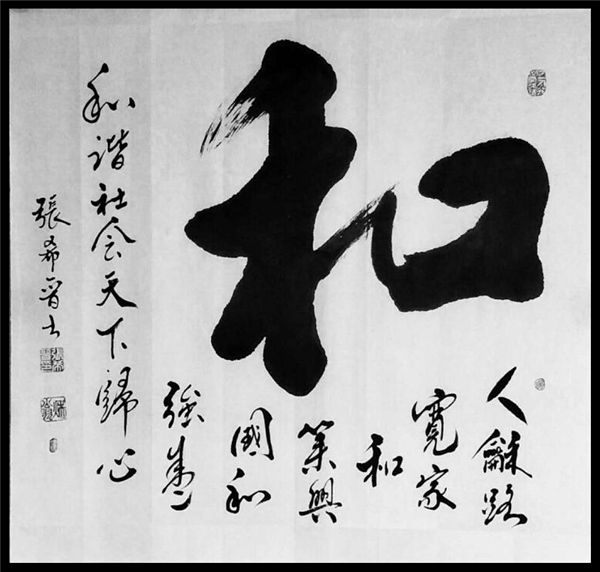 和
人龢路
寬家
和
業興
國和
強盛
和谐社会天下歸心
張希